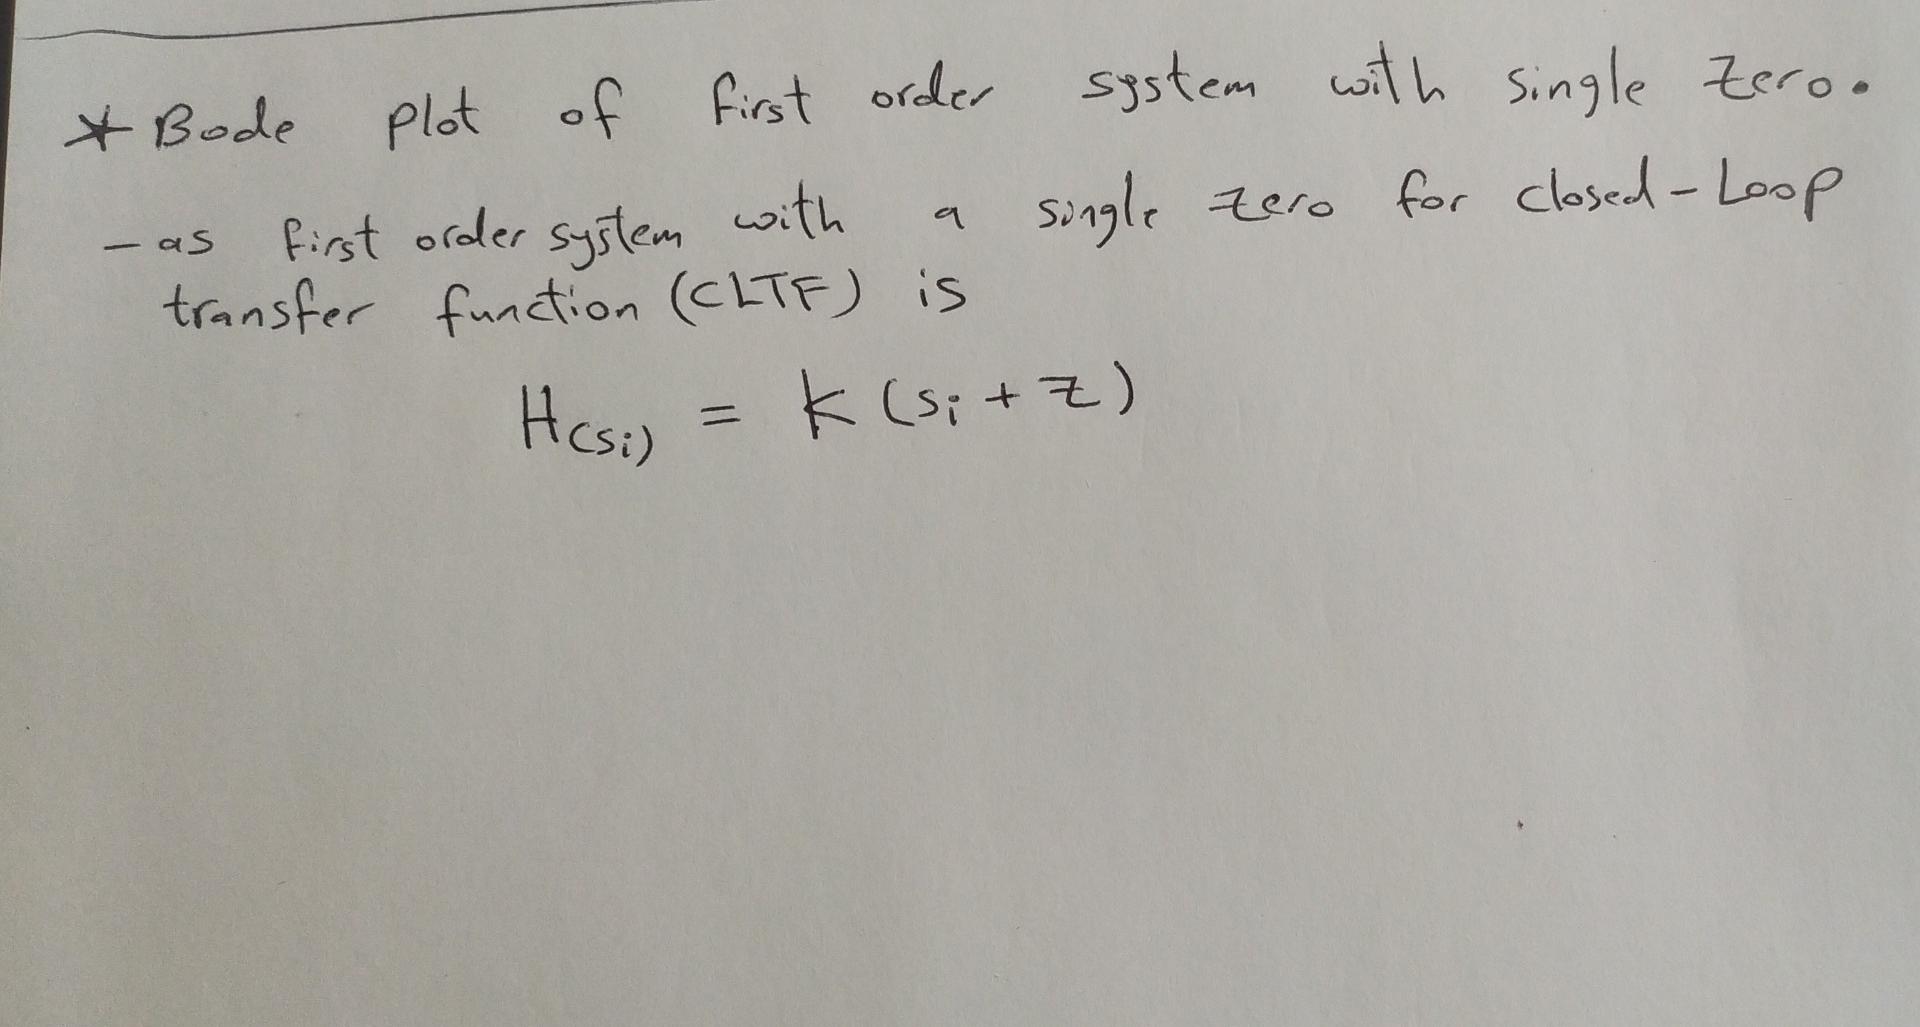 * Bode plot of first order system with single zero.
- as first order system with a single zero for closed-Loop
transfer function (CLTF) is
H(si) = k (si + z)